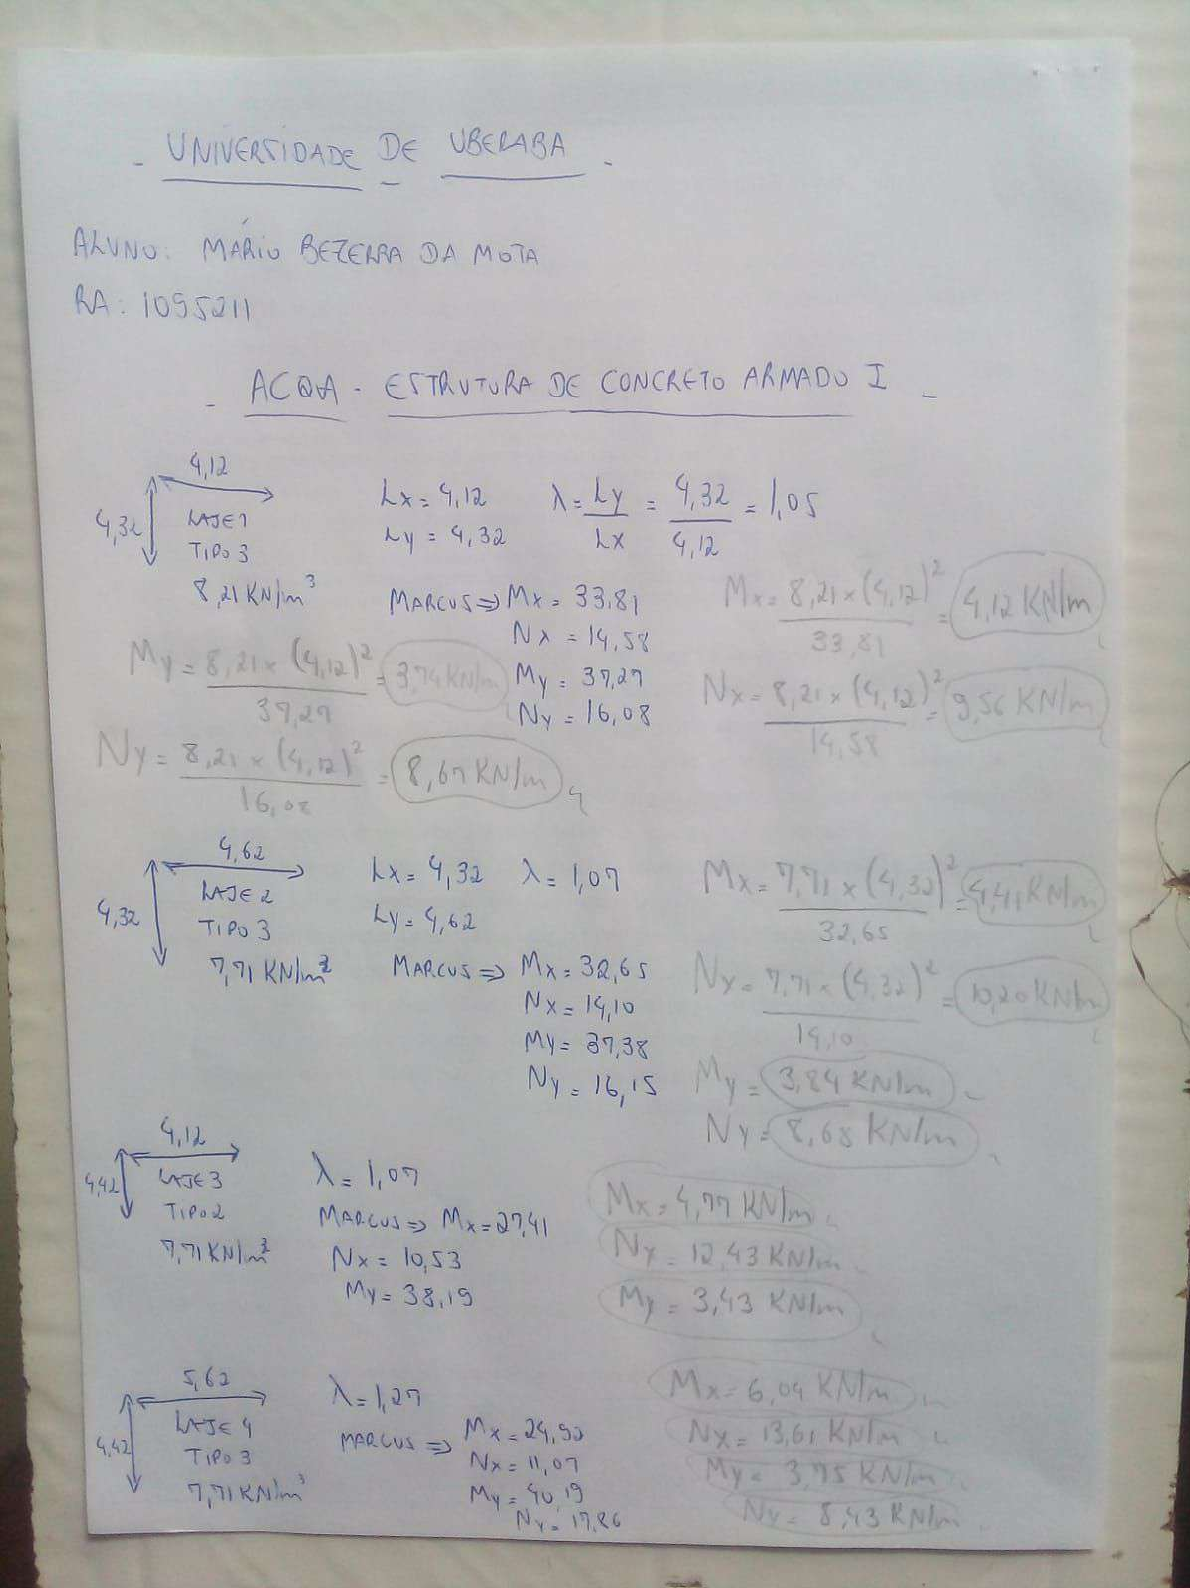 - UNIVERSIDADE DE UBERABA -
ALUNO: MÁRIO BEZERRA DA MOTA
RA: 1095211
- ACQA - ESTRUTURA DE CONCRETO ARMADO I -
4,12
4,32
LAJE 1
TIPO 3
8,21 KN/m³
Lx = 4,12
Ly = 4,32
λ = Ly/Lx = 4,32/4,12 = 1,05
MARCUS => Mx = 33,81
Nx = 14,58
My = 37,27
Ny = 16,08
Mx = 8,21 x (4,12)²/33,81 = 4,12 KN/m
Nx = 8,21 x (4,12)²/14,58 = 9,56 KN/m
My = 8,21 x (4,12)²/37,27 = 3,74 KN/m
Ny = 8,21 x (4,12)²/16,08 = 8,67 KN/m
4,62
4,32
LAJE 2
TIPO 3
7,71 KN/m²
Lx = 4,32
Ly = 4,62
λ = 1,07
MARCUS => Mx = 32,65
Nx = 14,10
My = 37,38
Ny = 16,15
Mx = 7,71 x (4,32)²/32,65 = 4,41 KN/m
Nx = 7,71 x (4,32)²/14,10 = 10,20 KN/m
My = 3,84 KN/m
Ny = 8,68 KN/m
4,12
4,42
LAJE 3
TIPO 2
7,71 KN/m²
λ = 1,07
MARCUS => Mx = 27,41
Nx = 10,53
My = 38,19
Mx = 4,77 KN/m
Nx = 12,43 KN/m
My = 3,43 KN/m
5,62
4,42
LAJE 4
TIPO 3
7,71 KN/m³
λ = 1,27
MARCUS => Mx = 24,92
Nx = 11,07
My = 40,19
Ny = 17,86
Mx = 6,04 KN/m
Nx = 13,61 KN/m
My = 3,75 KN/m
Ny = 8,43 KN/m